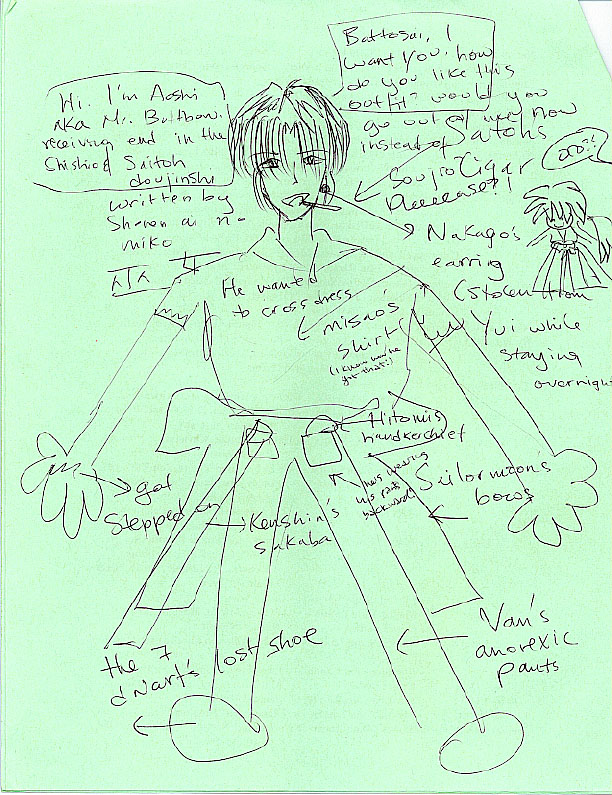 Hi. I'm Aoshi
AKA Mr. Buttbow.
receiving end in the
Shishio & Saitoh
doujinshi
written by
Battosai, I
want you. how
do you like this
outfit? would you
go out w/ me now
instead of
Saitoh's
Cigar
Soujiro
Pleeease?!
oro?!
Nakago's
earring
(Stolen from
Yui while
staying
overnight
He wanted
to crossdress
Misao's
shirt
(I know now he
got that!)
Hitomi's
handkerchief
he's wearing
his pants
backwards
Sailormoon's
bows
got
stepped on
Kenshin's
Sakaba
Van's
anorexic
pants
the 7
dwarf's lost shoe